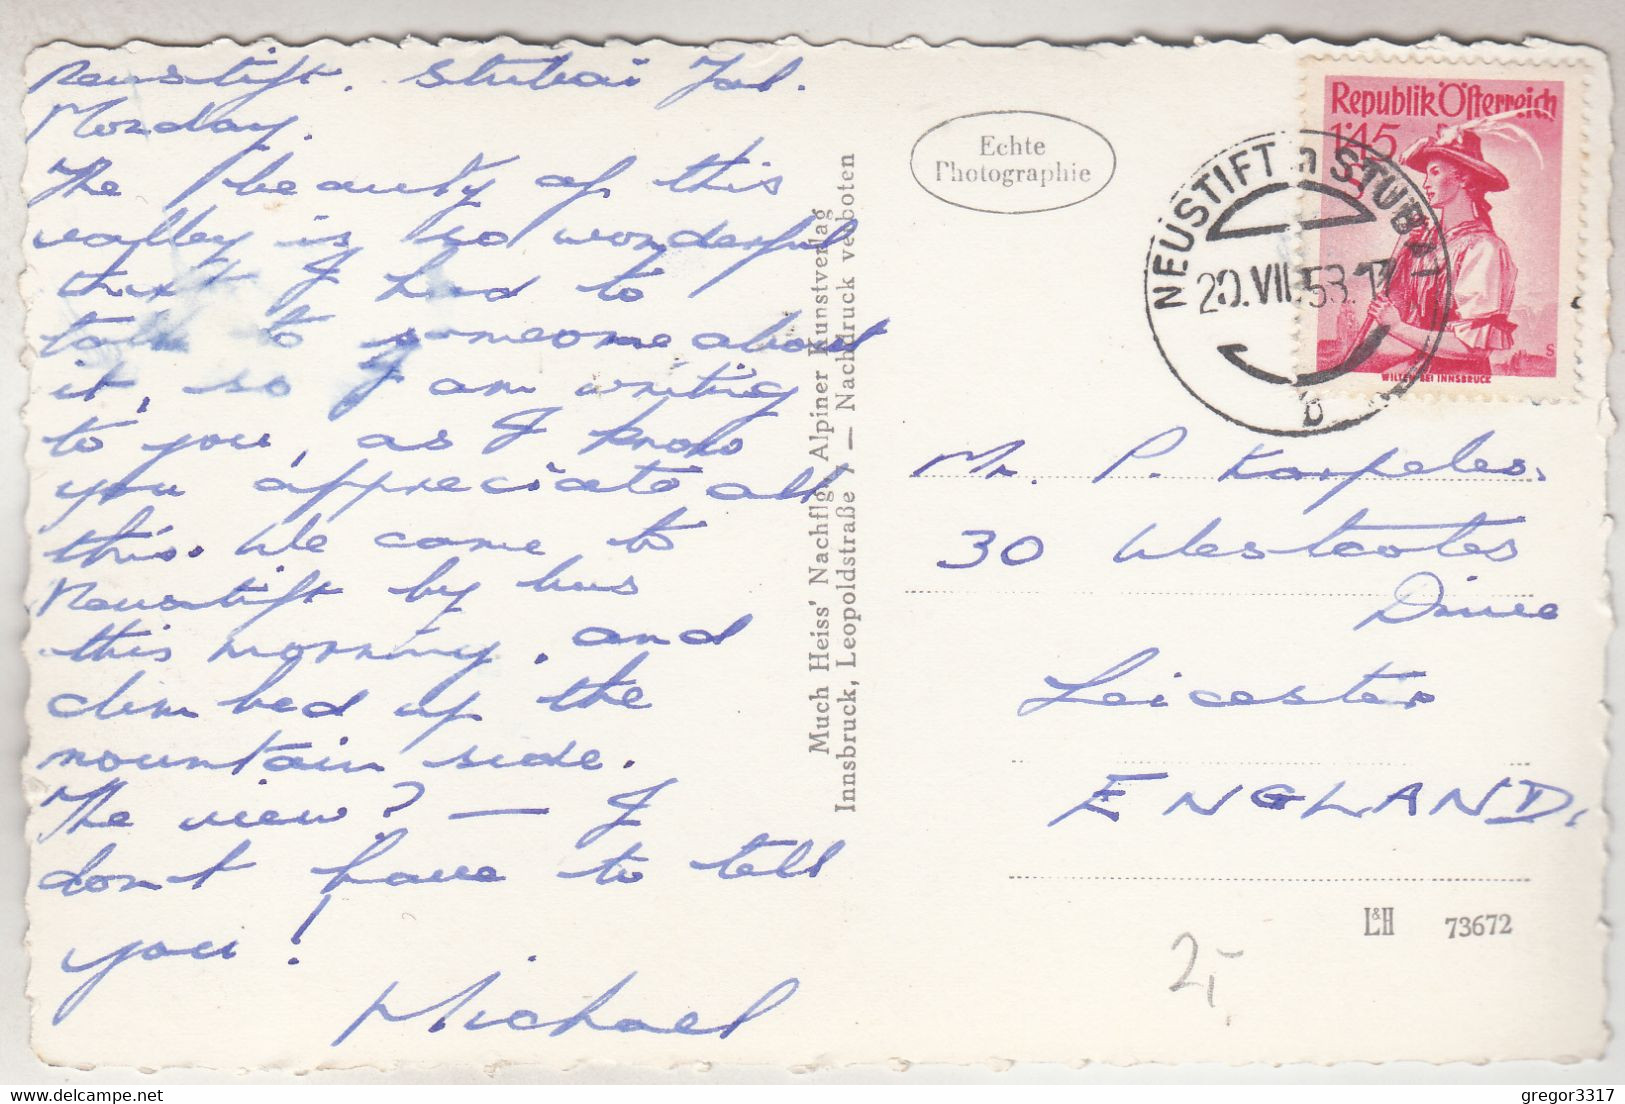 Neustift. Stubai Tal.
Monday.
The beauty of this
valley is so wonderful
that I had to
talk to someone about
it, so I am writing
to you, as I know
you appreciate all
this. We came to
Neustift by bus
this morning, and
climbed up the
mountain side.
The view? — I
dont have to tell
you!
Michael
Much Heiss' Nachflg., Alpiner Kunstverlag
Innsbruck, Leopoldstraße — Nachdruck verboten
Echte
Photographie
Republik Österreich
1'45
WILTEN BEI INNSBRUCK
S
NEUSTIFT STUBAI
20.VII.53.17
b
Mr. P. Karpeles.
30 Westcotes
Drive
Leicester
ENGLAND.
L&H 73672
2,-
delcampe.net
gregor3317